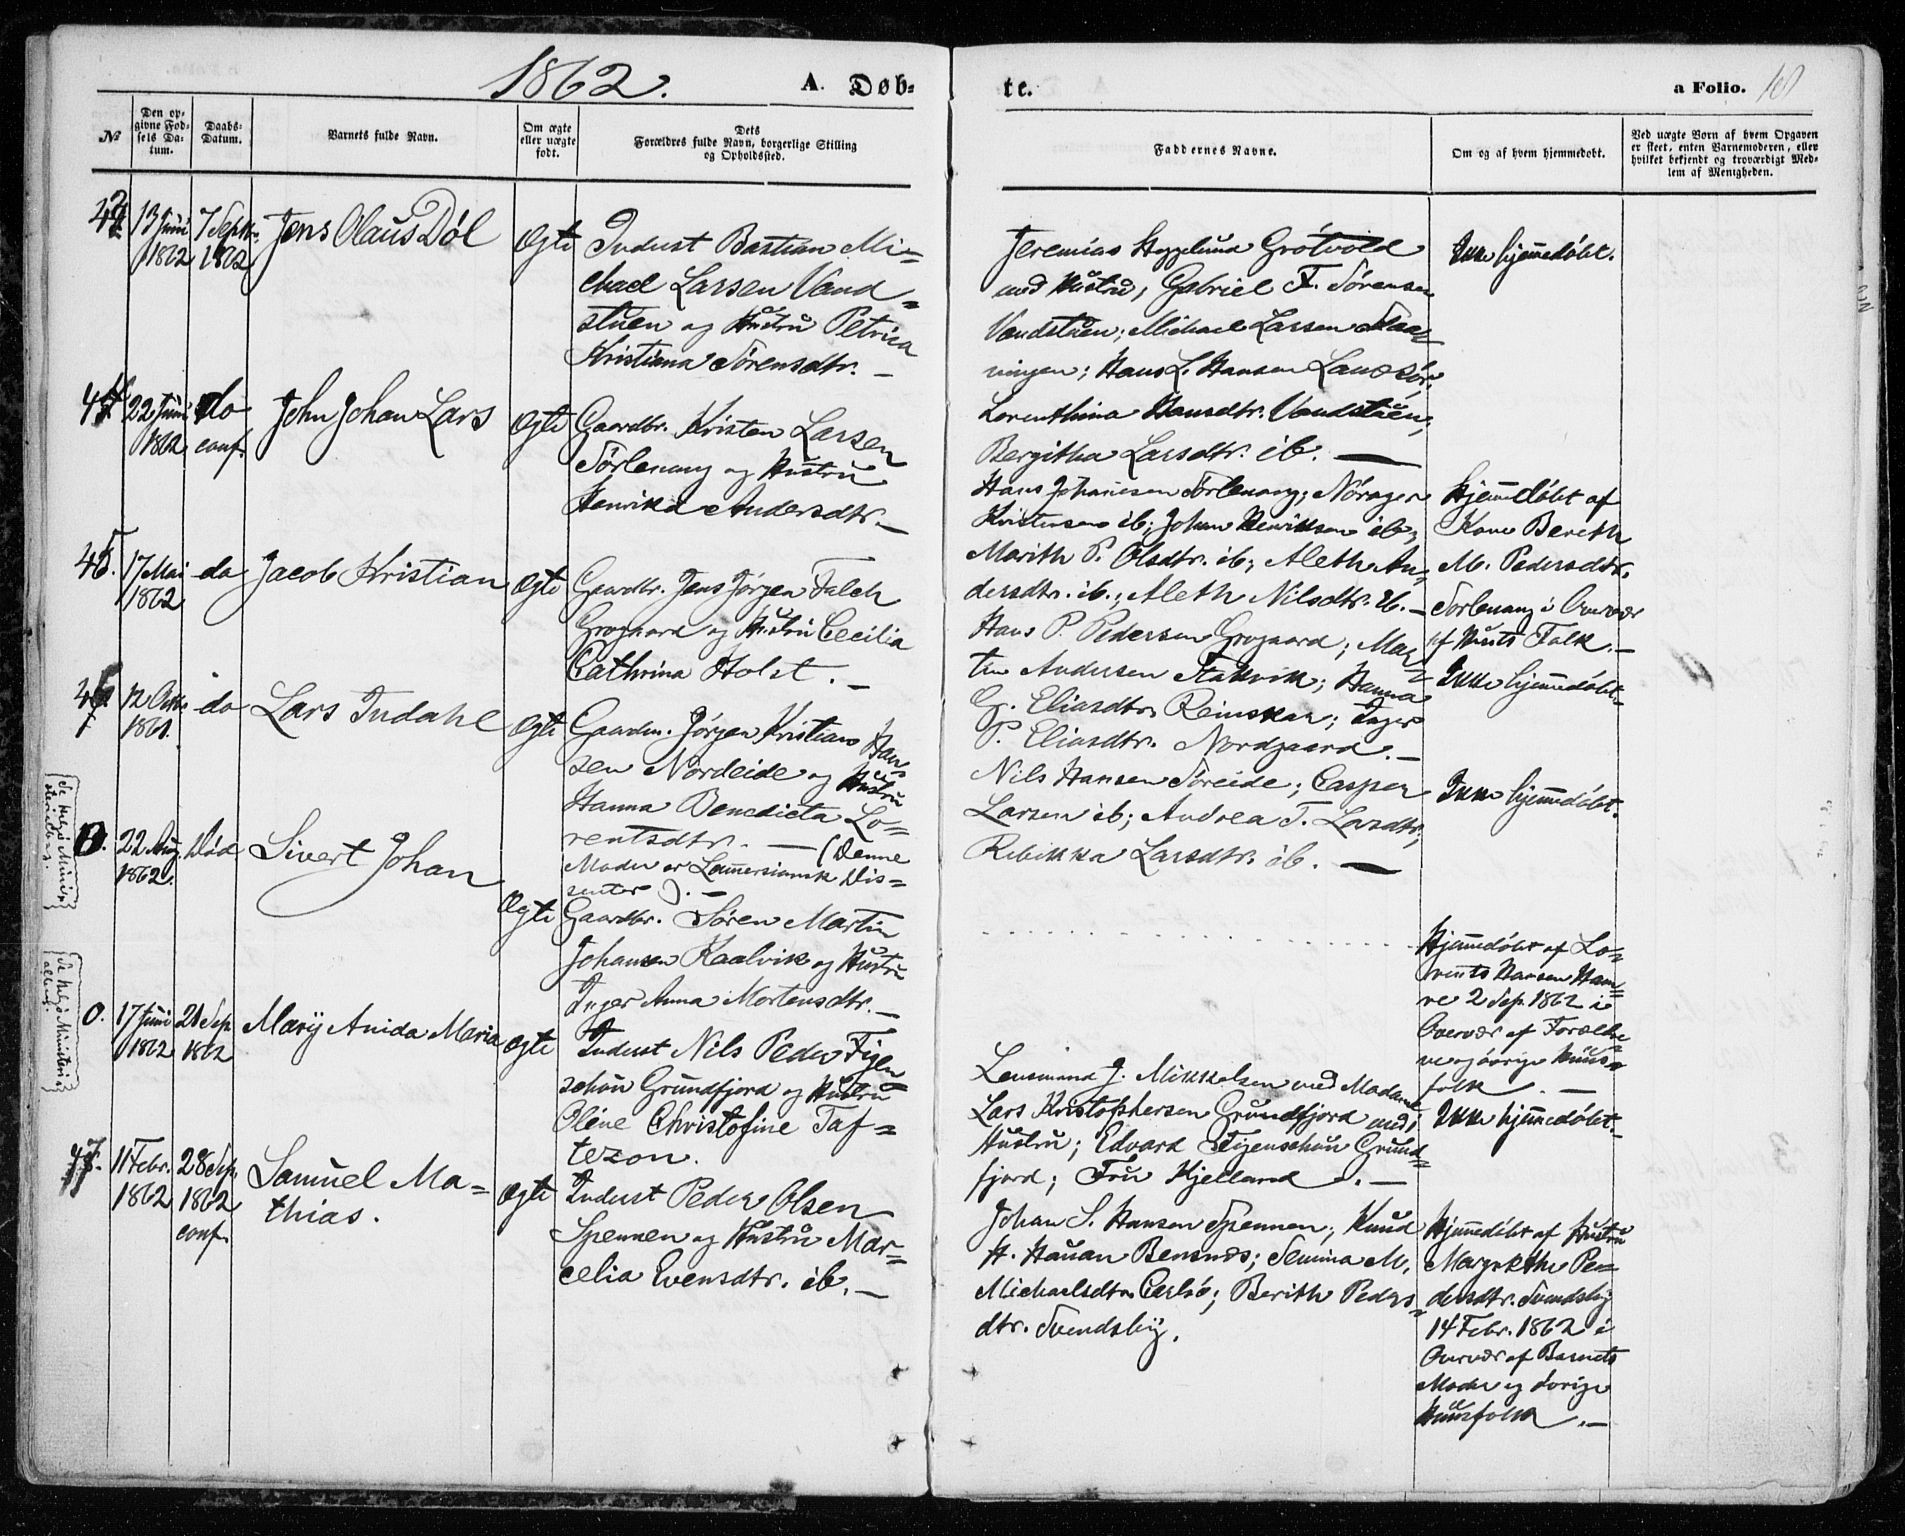 1862.
A. Døb-
te.
a Folio. 101
№
Den op-
givne Fød-
sels Da-
tum.
Daabs-
Datum.
Barnets fulde Navn.
Om ægte
eller uægte
født.
Dets
Forældres fulde Navn, borgerlige Stilling
og Opholdssted.
Faddernes Navne.
Om og af hvem hjemmedøbt.
Ved uægte Born af hvem Opgaven
er skeet, enten Barnemoderen, eller
hvilket bekjendt og troværdigt Med-
lem af Menigheden.
13 Juni
1862
7 Septbr.
1862
Jens Olaus Døl
Ægte
Indust Bastian Mi-
chael Larsen Vand-
stuen og Hustru Petrica
Kristiana Sørensdtr. —
Jeremias Heggelund Grötvold
med Hustru; Gabriel F. Sørensen
Vandstuen; Michael Larsen
ningen; Hans L. Hansen Langsør,
Lorenthina Hansdtr. Vandstuen,
Bergitha Larsdtr. ib. —
Ikke hjemmedøbt.
44
22 Juni
1862
do
conf.
John Johan Lars
Ægte
Gaardbr. Kristen Larsen
Sörlenang og Hustru
Henrika Andersdtr. —
Hans Johannesen Sörlenang; Nörager
Kristensen ib; Johan Henriksen ib;
Marith P. Olsdtr. ib; Aleth An-
dersdtr. ib.; Aleth Nilsdtr. ib. —
Hjemmedøbt af
Kone Bereth
M. Pedersdtr.
Sorlenang i Overvær
af Husets Folk. —
45.
17 Mai
1862
do
Jacob Kristian
Ægte
Gaardbr. Jens Jørgen Falch
Grøgaard og Hustru Cecilia
Cathrina Holst. —
Hans P. Pedersen Grøgaard; Mar-
tin Andersen Stakvik; Hanna
G. Eliasdtr. Reinskar; Inger
P. Eliasdtr. Nordgaard. —
Ikke hjemmedøbt.
46.
12 Oktbr.
1861.
do
Lars Indahl
Ægte
Gaardm. Jørgen Kristian Han-
sen Nordeide og Hustru
Hanna Benedicta Lo-
rentsdtr. — (Denne
Moder er Lammersiansk Dis-
senter). —
Nils Hansen Søreide; Casper
Larsen ib; Andrea T. Larsdtr;
Rebikka Larsdtr. ib. —
Ikke hjemmedøbt.
0.
22 Aug.
1862.
Död
Sivert Johan
Ægte
Gaardbr. Søren Martin
Johansen Kaalvik og Hustru
Inger Anna Mortensdtr. —
Hjemmedøbt af Lo-
rents Hansen Ham-
re 2 Sep. 1862 i
Overvær af Forældre-
ne og øvrige Huus-
folk. —
0.
17 Juni
1862
21 Sep
1862
Mary Anida Maria
Ægte
Indust Nils Peder Figen-
schou Grundfjord og Hustru
Oline Christofine Taf-
tezon.
Lensmand J. Mikkelsen med Madame
Lars Kristophersen Grundfjord med
Hustru; Edvard Figenschou Grund-
fjord; Fru Kjelland. —
Ikke hjemmedøbt. —
47.
11 Febr.
1862
28 Sep.
1862
conf.
Samuel Ma-
thias.
Ægte
Indust Peder Olsen
Spennen og Hustru Mar-
celia Evensdtr. ib. —
Johan S. Hansen Spennen; Knud
H. Hauan Bensnæs; Semina M.
Michaelsdtr. Carlsö; Berith Peders-
dtr. Svendsby.
Hjemmedøbt af Hustru
Margrethe Pe-
dersdtr. Svendsby
14 Febr. 1862 i
Overvær af Barnets
Moder og övrige
Huusfolk. —